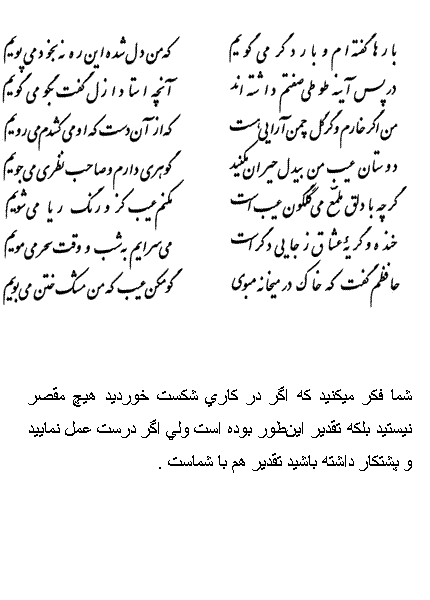 بارها گفته ام و بار دگر می گویم که من دل شده این ره نه بخود می پویم
در پس آینه طوطی صفتم داشته اند آنچه استاد ازل گفت بگو می گویم
من اگر خارم و گر گل چمن آرایی هست که از آن دست که او می کشدم می رویم
دوستان عیب من بیدل حیران مکنید گوهری دارم و صاحب نظری می جویم
گرچه با دلق ملمع می گلگون عیب است مکنم عیب کز و رنگ ریا می شویم
خنده و گریهٔ عشاق ز جایی دگر است می سرایم به شب و وقت سحر می مویم
حافظم گفت که خاک در میخانه مبوی گو مکن عیب که من مشک ختن می بویم
شما فکر میکنید که اگر در کاري شکست خوردید هیچ مقصر
نیستید بلکه تقدیر این‌طور بوده است ولي اگر درست عمل نمایید
و پشتکار داشته باشید تقدیر هم با شماست .